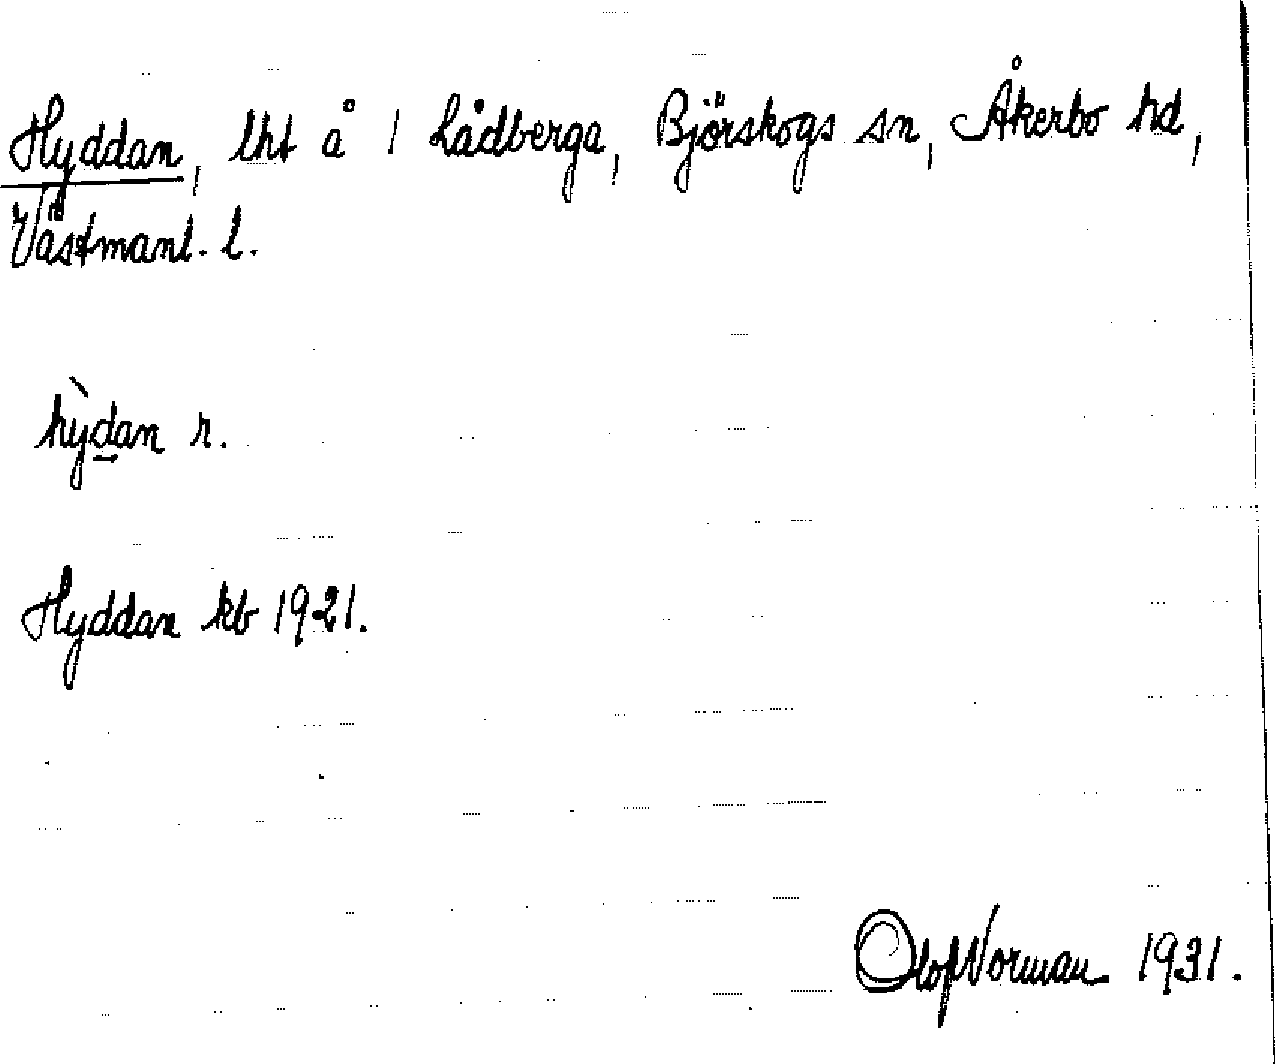 Hyddan, lht å 1 Lådberga, Björskogs sn, Åkerbo hd,
Västmanl. l.
hỳdan r.
Hyddan kb 1921.
Olof Norman 1931.